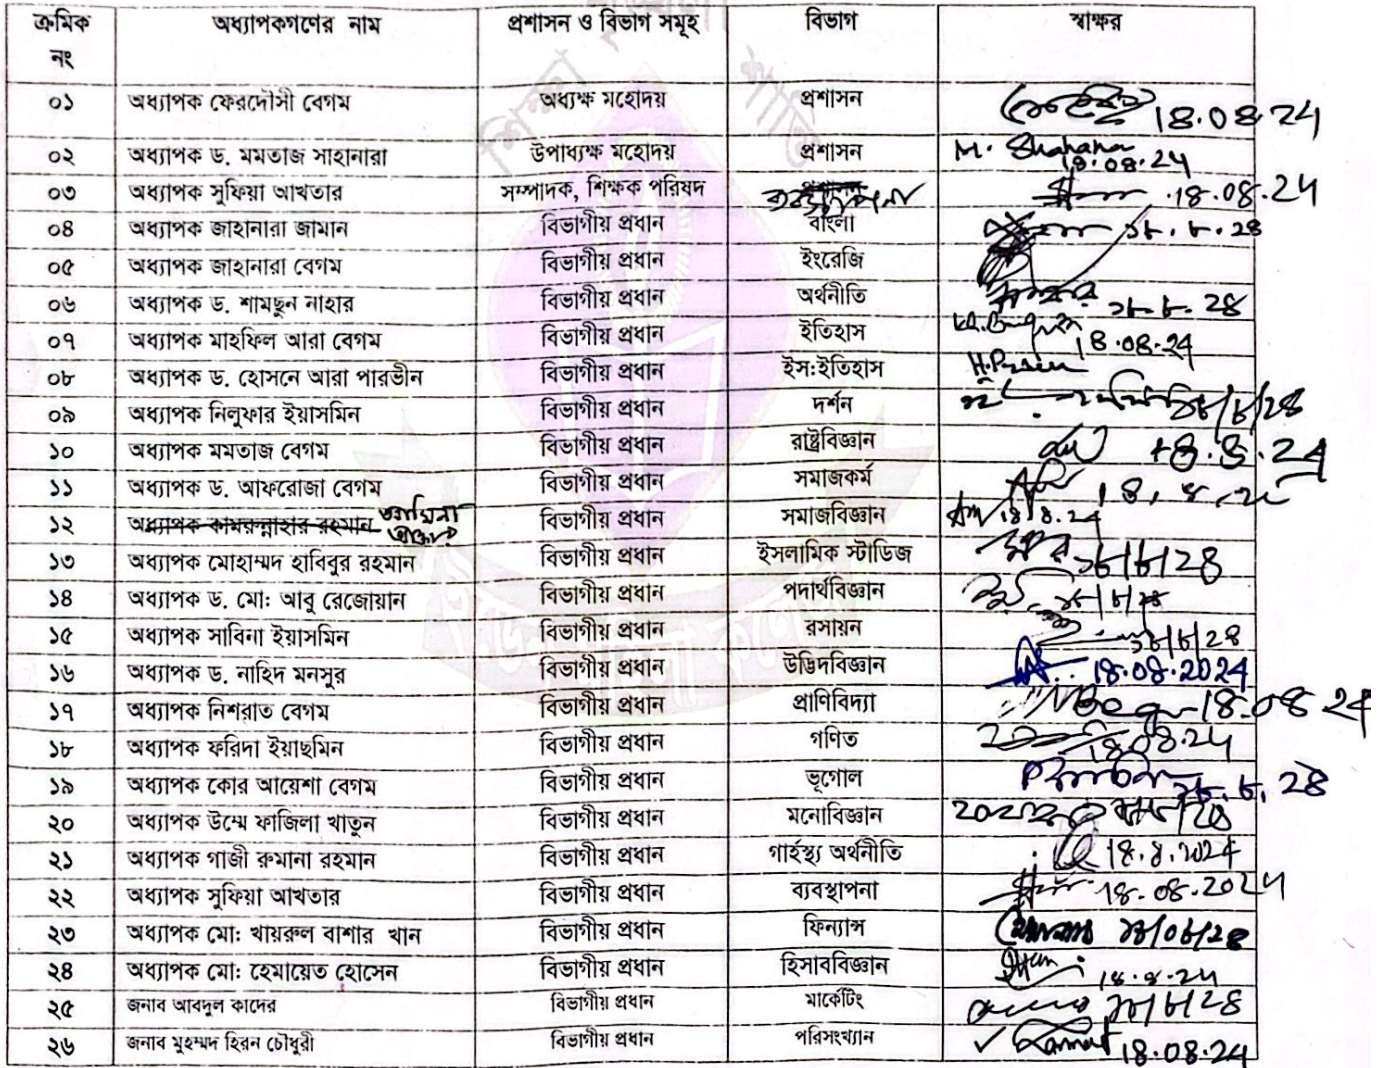 ক্রমিক নং অধ্যাপকগণের নাম প্রশাসন ও বিভাগ সমূহ বিভাগ স্বাক্ষর
০১ অধ্যাপক ফেরদৌসী বেগম অধ্যক্ষ মহোদয় প্রশাসন 18.08.24
০২ অধ্যাপক ড. মমতাজ সাহানারা উপাধ্যক্ষ মহোদয় প্রশাসন M. Shahana 18.08.24
০৩ অধ্যাপক সুফিয়া আখতার সম্পাদক, শিক্ষক পরিষদ প্রশাসন ব্যবস্থাপনা 18.08.24
০৪ অধ্যাপক জাহানারা জামান বিভাগীয় প্রধান বাংলা ১৮.৮.২৪
০৫ অধ্যাপক জাহানারা বেগম বিভাগীয় প্রধান ইংরেজি
০৬ অধ্যাপক ড. শামছুন নাহার বিভাগীয় প্রধান অর্থনীতি ১৮.৮.২৪
০৭ অধ্যাপক মাহফিল আরা বেগম বিভাগীয় প্রধান ইতিহাস 18.08.24
০৮ অধ্যাপক ড. হোসনে আরা পারভীন বিভাগীয় প্রধান ইস:ইতিহাস
০৯ অধ্যাপক নিলুফার ইয়াসমিন বিভাগীয় প্রধান দর্শন ১৮/৮/২৪
১০ অধ্যাপক মমতাজ বেগম বিভাগীয় প্রধান রাষ্ট্রবিজ্ঞান 18.8.24
১১ অধ্যাপক ড. আফরোজা বেগম বিভাগীয় প্রধান সমাজকর্ম
১২ অধ্যাপক কামরুন্নাহার রহমান আমিনা বিভাগীয় প্রধান সমাজবিজ্ঞান 18.8.24
১৩ অধ্যাপক মোহাম্মদ হাবিবুর রহমান বিভাগীয় প্রধান ইসলামিক স্টাডিজ ১৮/৮/২৪
১৪ অধ্যাপক ড. মো: আবু রেজোয়ান বিভাগীয় প্রধান পদার্থবিজ্ঞান ১৮/৮/২৪
১৫ অধ্যাপক সাবিনা ইয়াসমিন বিভাগীয় প্রধান রসায়ন ১৮/৮/২৪
১৬ অধ্যাপক ড. নাহিদ মনসুর বিভাগীয় প্রধান উদ্ভিদবিজ্ঞান 18.08.2024
১৭ অধ্যাপক নিশরাত বেগম বিভাগীয় প্রধান প্রাণিবিদ্যা 18.08.24
১৮ অধ্যাপক ফরিদা ইয়াছমিন বিভাগীয় প্রধান গণিত 18.08.24
১৯ অধ্যাপক কোর আয়েশা বেগম বিভাগীয় প্রধান ভূগোল ১৮.৮.২৪
২০ অধ্যাপক উম্মে ফাজিলা খাতুন বিভাগীয় প্রধান মনোবিজ্ঞান
২১ অধ্যাপক গাজী রুমানা রহমান বিভাগীয় প্রধান গার্হস্থ্য অর্থনীতি 18.8.2024
২২ অধ্যাপক সুফিয়া আখতার বিভাগীয় প্রধান ব্যবস্থাপনা 18.08.2024
২৩ অধ্যাপক মো: খায়রুল বাশার খান বিভাগীয় প্রধান ফিন্যান্স ১৮/০৮/২৪
২৪ অধ্যাপক মো: হেমায়েত হোসেন বিভাগীয় প্রধান হিসাববিজ্ঞান 18.8.24
২৫ জনাব আবদুল কাদের বিভাগীয় প্রধান মার্কেটিং ১৮/৮/২৪
২৬ জনাব মুহম্মদ হিরন চৌধুরী বিভাগীয় প্রধান পরিসংখ্যান 18.08.24